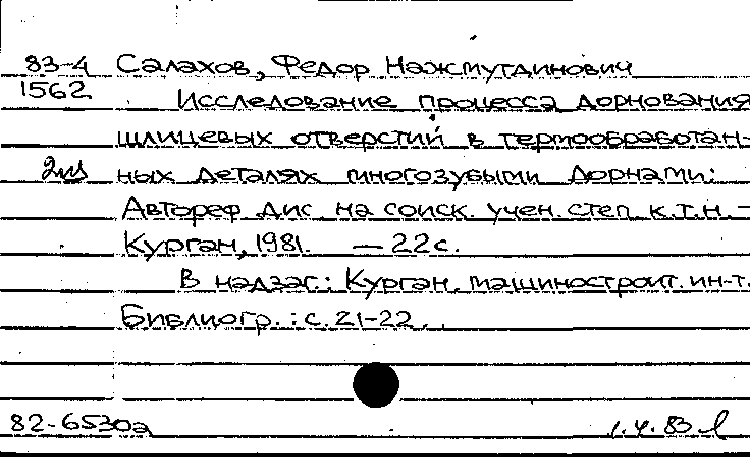 83-4 Салахов, Федор Нажмутдинович
1562 Исследование процесса дорнования
шлицевых отверстий в термообработан-
2 ных деталях многозубыми дорнами:
Автореф. дис. на соиск. учен. степ. к.т.н. -
Курган, 1981. — 22 с.
В надзаг.: Курган. машиностроит. ин-т.
Библиогр.: с. 21-22.
82-6530а 1.4.83